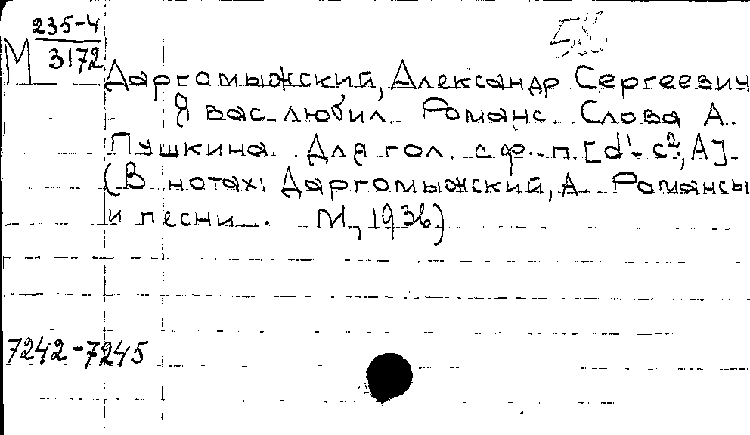 235-4
М 3172
Даргомыжский, Александр Сергеевич
Я вас любил. Романс. Слова А.
Пушкина. Для гол. с ф.-п. [d¹-c², A].
(В нотах: Даргомыжский, А. Романсы
и песни. М, 1936)
7242-7245